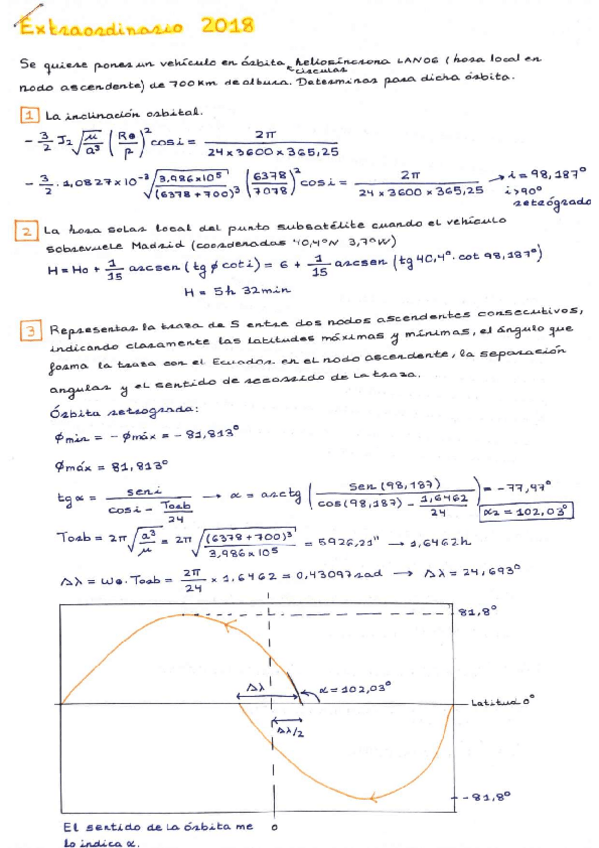 Extraordinario 2018
Se quiere poner un vehículo en órbita heliosíncrona LAN06 (hora local en
circular
nodo ascendente) de 700km de altura. Determinar para dicha órbita.
1 La inclinación orbital.
- 3/2 J2 √(μ/a³) (R⊕/p)² cos i = 2π / (24 x 3600 x 365,25)
- 3/2 · 1,0827x10⁻³ √(3,986x10⁵/(6378+700)³) (6378/7078)² cos i = 2π / (24 x 3600 x 365,25) → i = 98,187°
i > 90°
retrógrado
2 La hora solar local del punto subsatélite cuando el vehículo
sobrevuele Madrid (coordenadas 40,4°N 3,7°W)
H = Ho + 1/15 arcsen (tg φ cot i) = 6 + 1/15 arcsen (tg 40,4° · cot 98,187°)
H = 5h 32min
3 Representar la traza de S entre dos nodos ascendentes consecutivos,
indicando claramente las latitudes máximas y mínimas, el ángulo que
forma la traza con el Ecuador en el nodo ascendente, la separación
angular y el sentido de recorrido de la traza.
Órbita retrograda:
φmin = - φmáx = - 81,813°
φmáx = 81,813°
tg α = sen i / (cos i - Torb/24) → α = arctg (sen (98,187) / (cos (98,187) - 1,6462/24)) = -77,97°
α2 = 102,03°
Torb = 2π √(a³/μ) = 2π √((6378+700)³/3,986x10⁵) = 5926,21" → 1,6462h
Δλ = ω⊕ · Torb = 2π/24 x 1,6462 = 0,43097rad → Δλ = 24,693°
81,8°
Δλ
α = 102,03°
Latitud 0°
Δλ/2
-81,8°
El sentido de la órbita me
0
lo indica α.